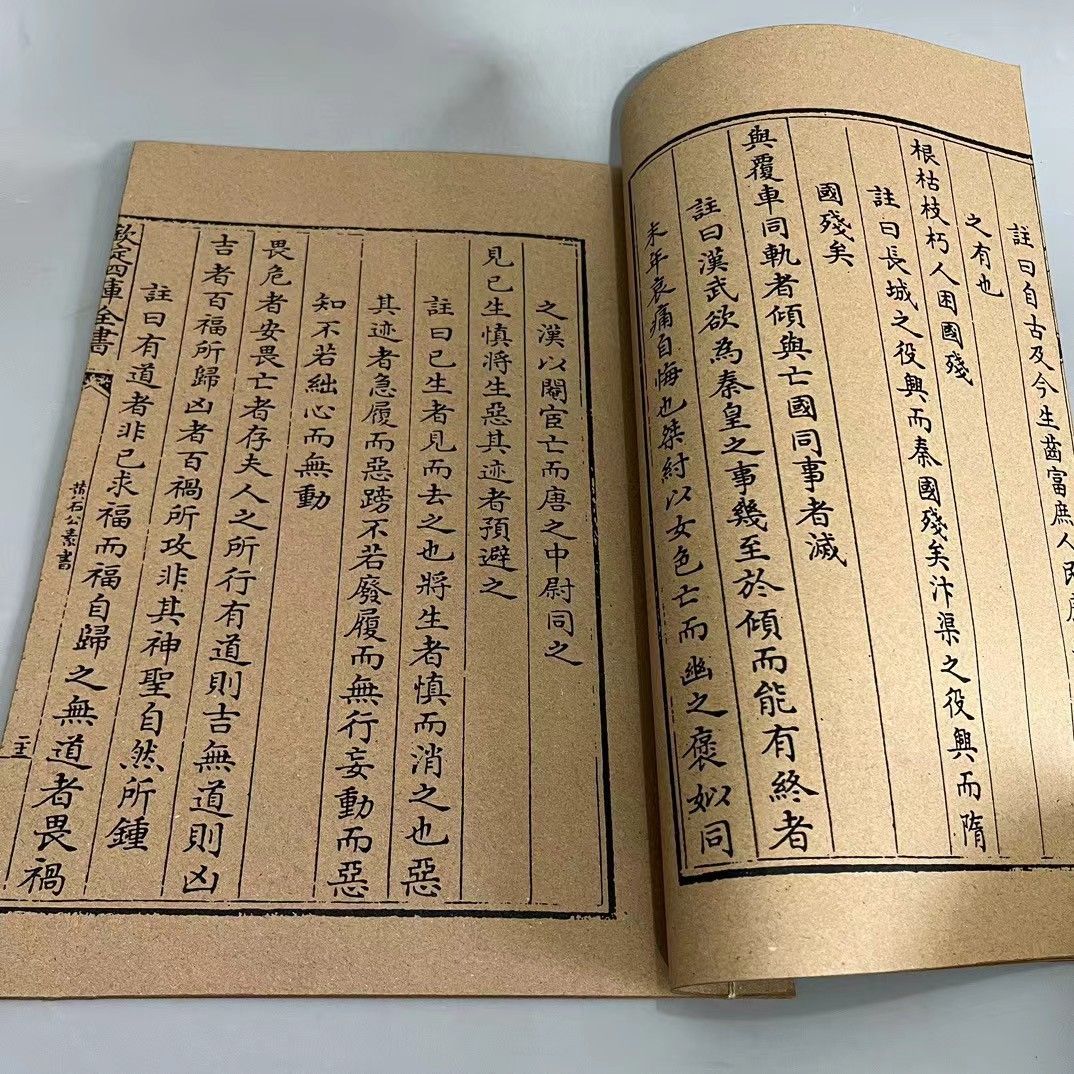 註曰自古及今生齒富庶人民
之有也
根枯枝朽人困國殘
註曰長城之役興而秦國殘矣汴渠之役興而隋
國殘矣
與覆車同軌者傾與亡國同事者滅
註曰漢武欲為秦皇之事幾至於傾而能有終者
末年哀痛自悔也桀紂以女色亡而幽之褒姒同
之漢以閹宦亡而唐之中尉同之
見已生慎將生惡其迹者預避之
註曰已生者見而去之也將生者慎而消之也惡
其迹者急履而惡蹐不若廢履而無行妄動而惡
知不若絀心而無動
畏危者安畏亡者存夫人之所行有道則吉無道則凶
吉者百福所歸凶者百禍所攻非其神聖自然所鍾
註曰有道者非已求福而福自歸之無道者畏禍
欽定四庫全書
黃石公素書